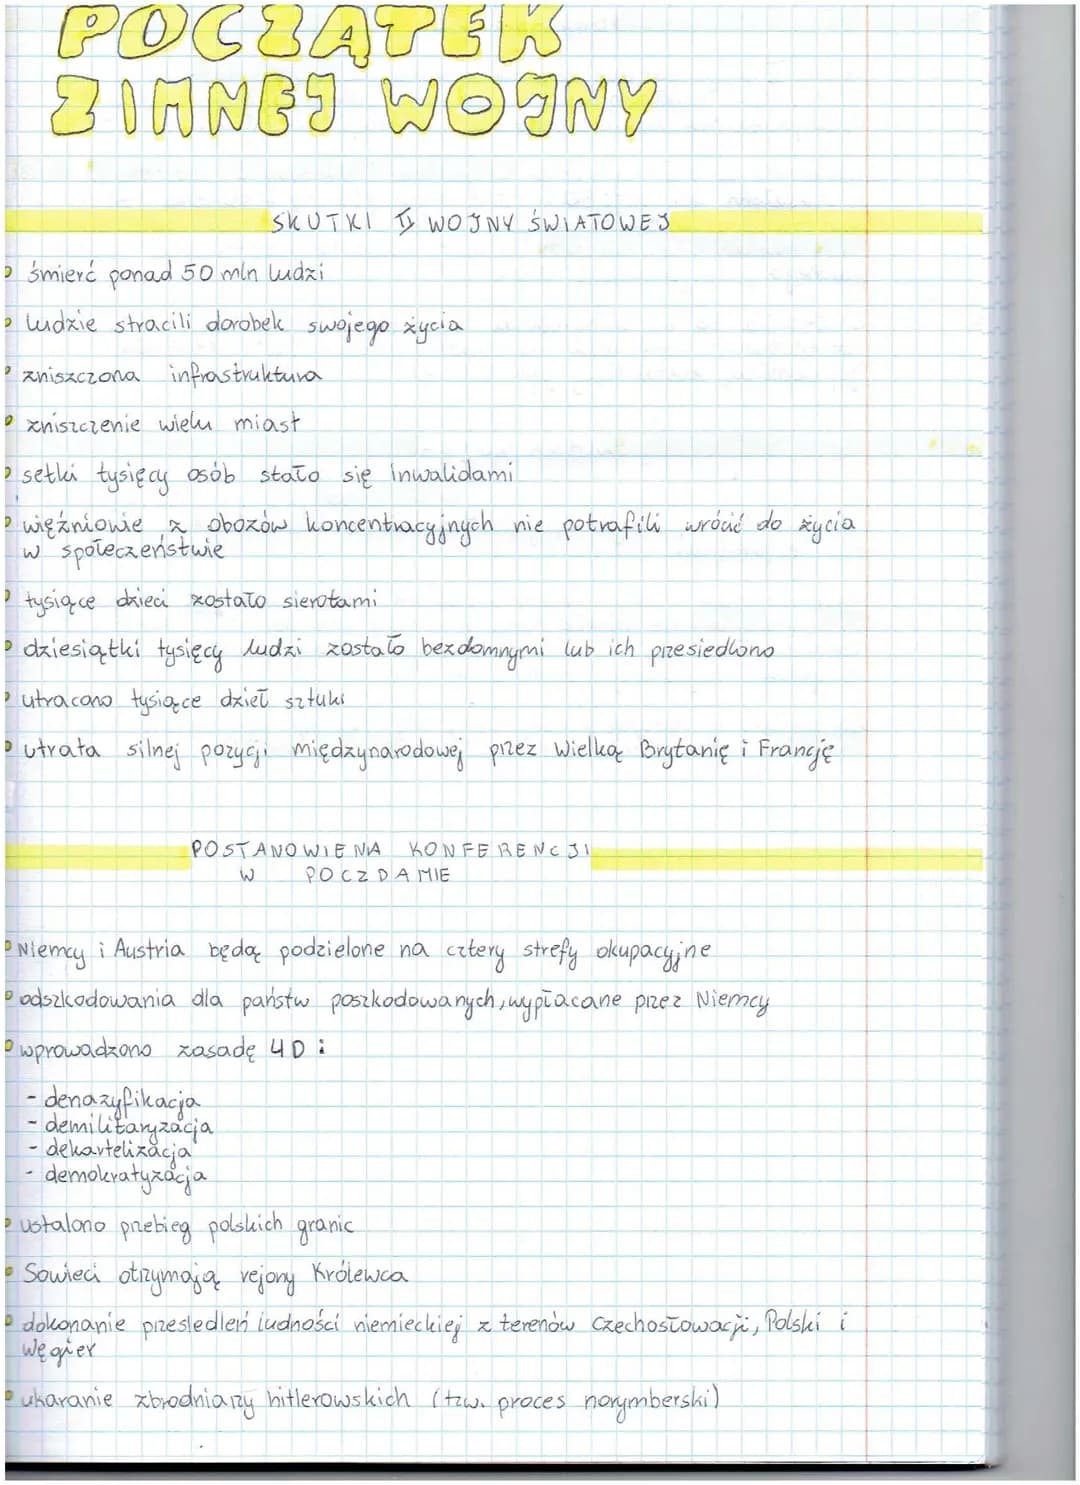 POCZĄTEK
ZIMNEJ WOJNY
SKUTKI II WOJNY ŚWIATOWEJ
śmierć ponad 50 mln ludzi
ludzie stracili dorobek swojego życia
zniszczona infrastruktura
zniszczenie wielu miast
setki tysięcy osób stało się inwalidami
więźniowie z obozów koncentracyjnych nie potrafili wrócić do życia
w społeczeństwie
tysiące dzieci zostało sierotami
dziesiątki tysięcy ludzi zostało bezdomnymi lub ich przesiedlono
utracono tysiące dzieł sztuki
utrata silnej pozycji międzynarodowej przez Wielką Brytanię i Francję
POSTANOWIENA KONFERENCJI
W POCZDAMIE
Niemcy i Austria będą podzielone na cztery strefy okupacyjne
odszkodowania dla państw poszkodowanych, wypłacane przez Niemcy
wprowadzono zasadę 4D:
- denazyfikacja
- demilitaryzacja
- dekartelizacja
- demokratyzacja
ustalono przebieg polskich granic
Sowieci otrzymają rejony Królewca
dokonanie przesiedleń ludności niemieckiej z terenów Czechosłowacji, Polski i
Węgier
ukaranie zbrodniarzy hitlerowskich (tzw. proces norymberski)